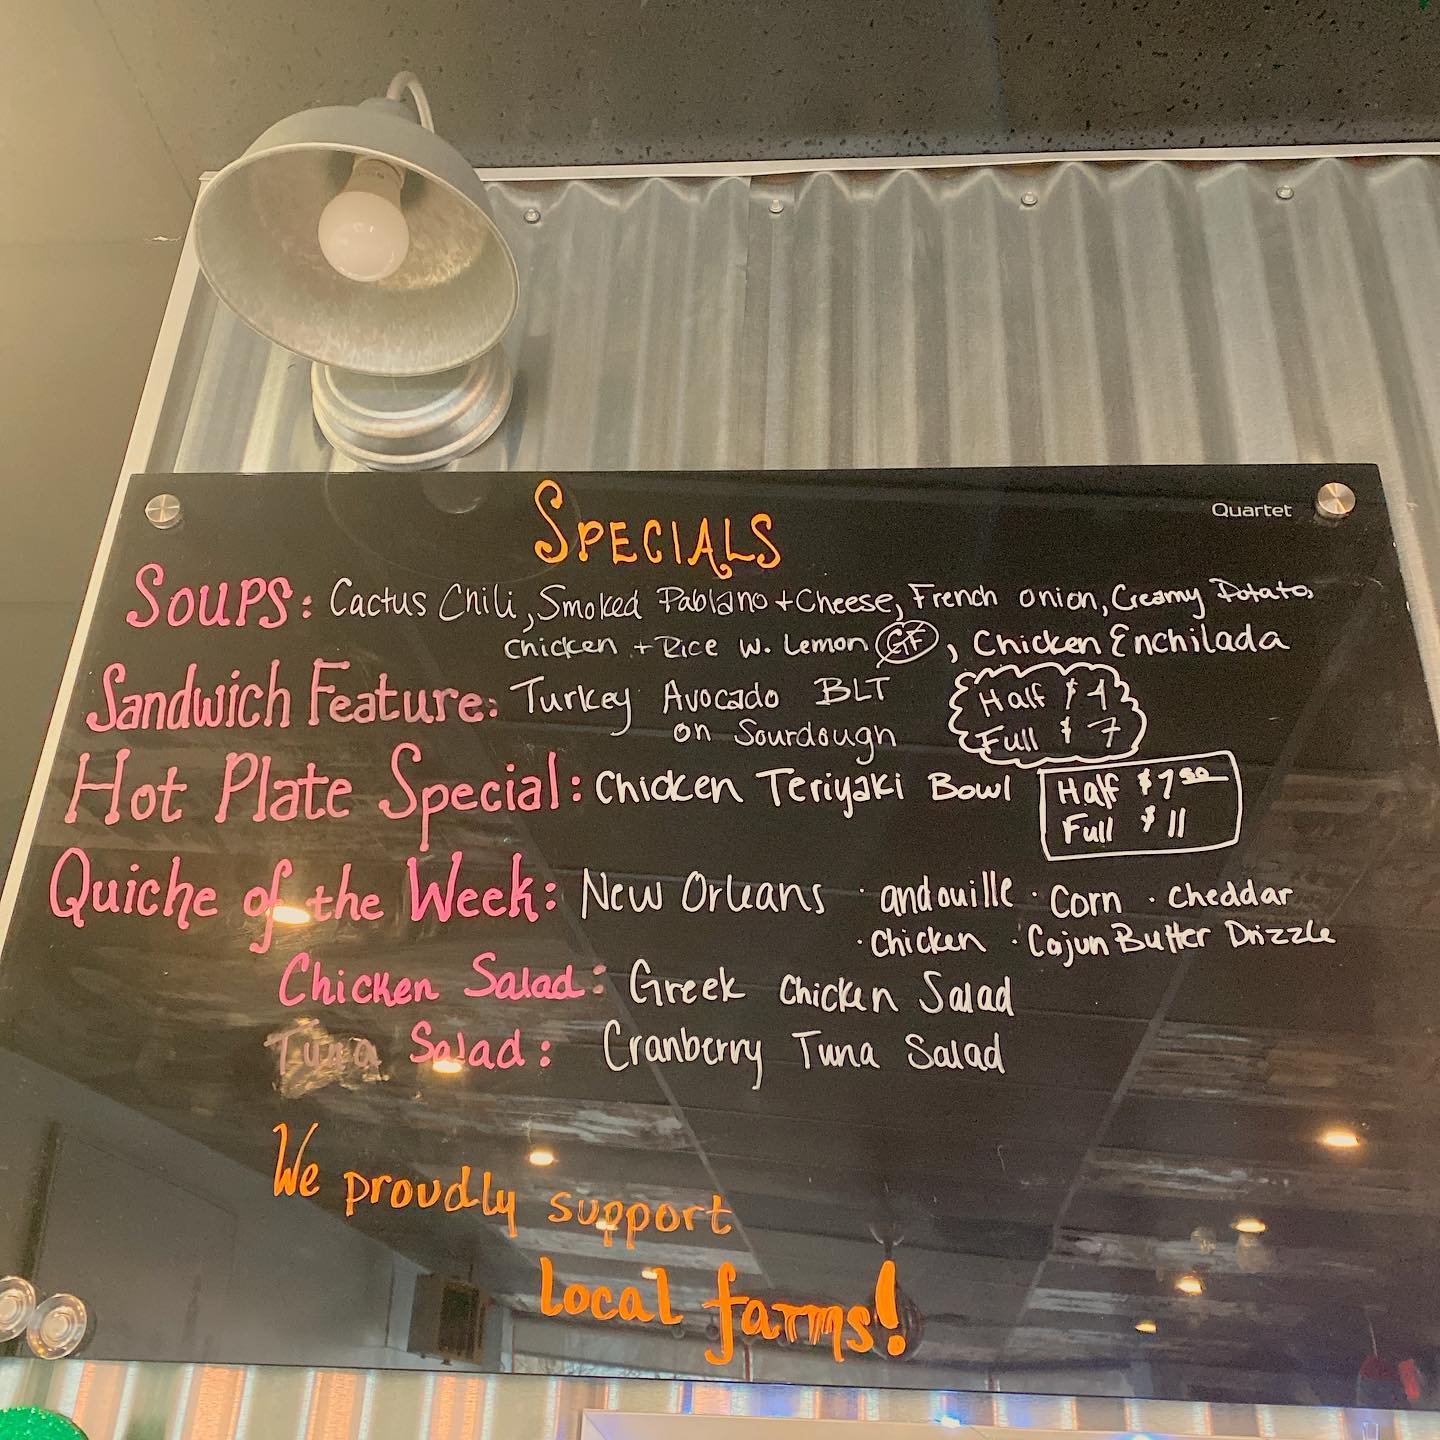 Quartet
SPECIALS
SOUPS: Cactus Chili, Smoked Pablano + Cheese, French onion, Creamy Potato,
Chicken + Rice w. Lemon GF, Chicken Enchilada
Sandwich Feature: Turkey Avocado BLT Half $4
on Sourdough Full $7
Hot Plate Special: Chicken Teriyaki Bowl Half $7.50
Full $11
Quiche of the Week: New Orleans · andouille · Corn · Cheddar
· Chicken · Cajun Butter Drizzle
Chicken Salad: Greek Chicken Salad
Tuna Salad: Cranberry Tuna Salad
We proudly support
local farms!